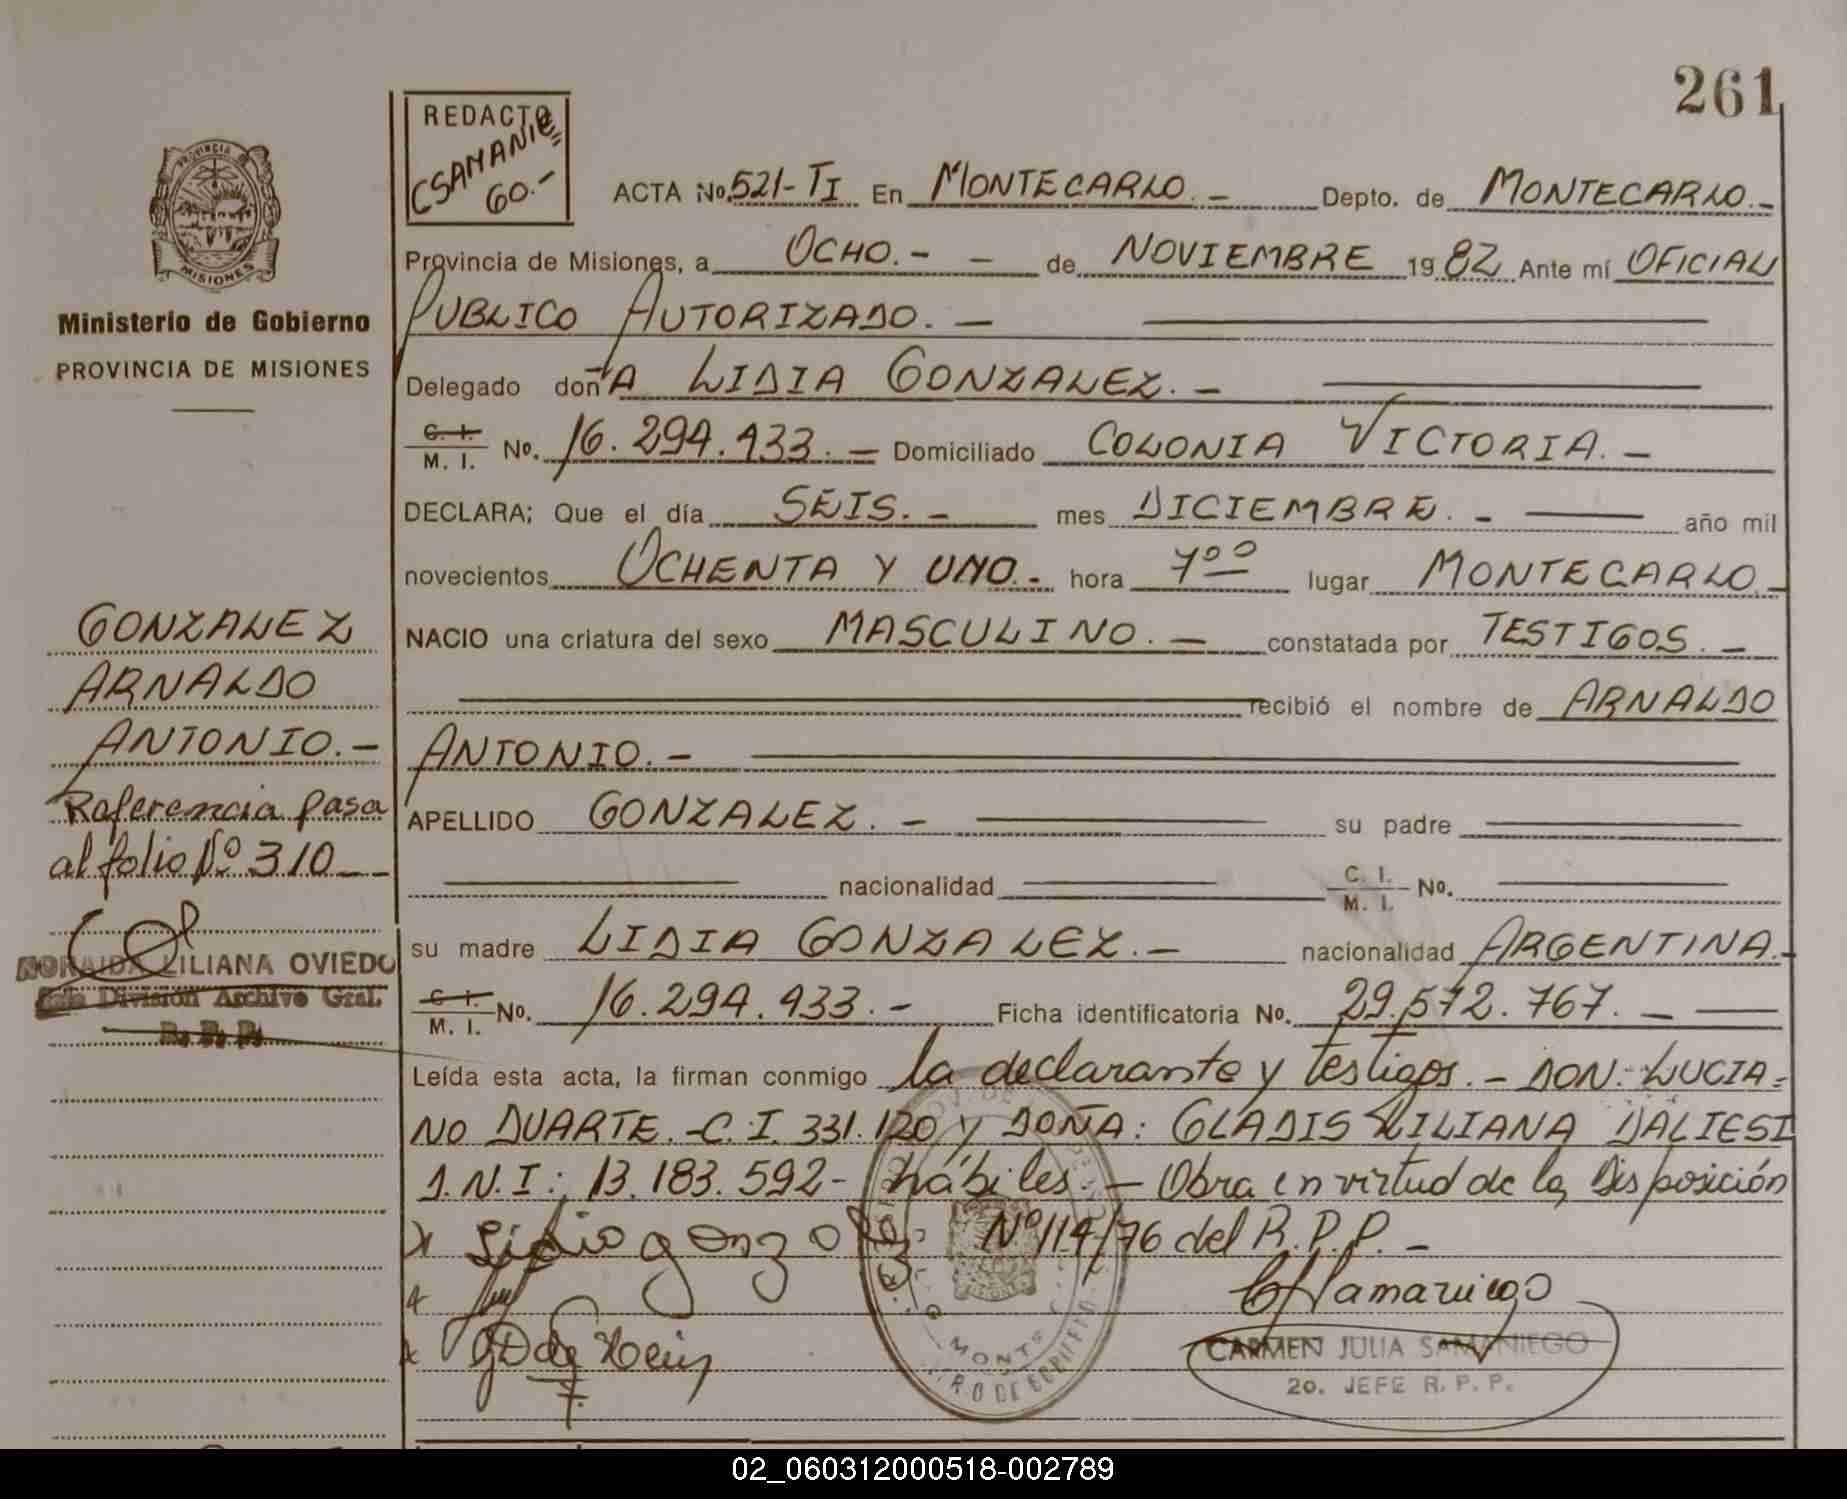 261
REDACTO
CSAMANIE
60.-
ACTA No. 521-TI En MONTECARLO. - Depto. de MONTECARLO. -
Provincia de Misiones, a OCHO. - - de NOVIEMBRE 1982 Ante mí OFICIAL
PUBLICO AUTORIZADO. -
Delegado doñA LIDIA GONZALEZ. -
C. I. / M. I. No. 16.294.933. - Domiciliado COLONIA VICTORIA. -
DECLARA; Que el día SEIS. - mes DICIEMBRE. - año mil
novecientos OCHENTA Y UNO. - hora 7ºº lugar MONTECARLO. -
NACIO una criatura del sexo MASCULINO. - constatada por TESTIGOS. -
recibió el nombre de ARNALDO
ANTONIO. -
APELLIDO GONZALEZ. - su padre
nacionalidad C. I. / M. I. No.
su madre LIDIA GONZALEZ. - nacionalidad ARGENTINA. -
C. I. / M. I. No. 16.294.933. - Ficha identificatoria No. 29.572.767. -
Leída esta acta, la firman conmigo la declarante y testigos. - DON: LUCIA=
NO DUARTE. -C.I. 331.120 y DOÑA: GLADIS LILIANA DALIESI
D.N.I: 13.183.592- hábiles. - Obra en virtud de la Disposición
Nº 114/76 del R.P.P. -
Lidia gonzalez
CJSamaniego
CARMEN JULIA SAMANIEGO
2o. JEFE R. P. P.
PROVINCIA DE
MISIONES
Ministerio de Gobierno
PROVINCIA DE MISIONES
GONZALEZ
ARNALDO
ANTONIO. -
Referencia pasa
al folio Nº 310
NORAIDA LILIANA OVIEDO
División Archivo Gral.
R. P. P.
02_060312000518-002789